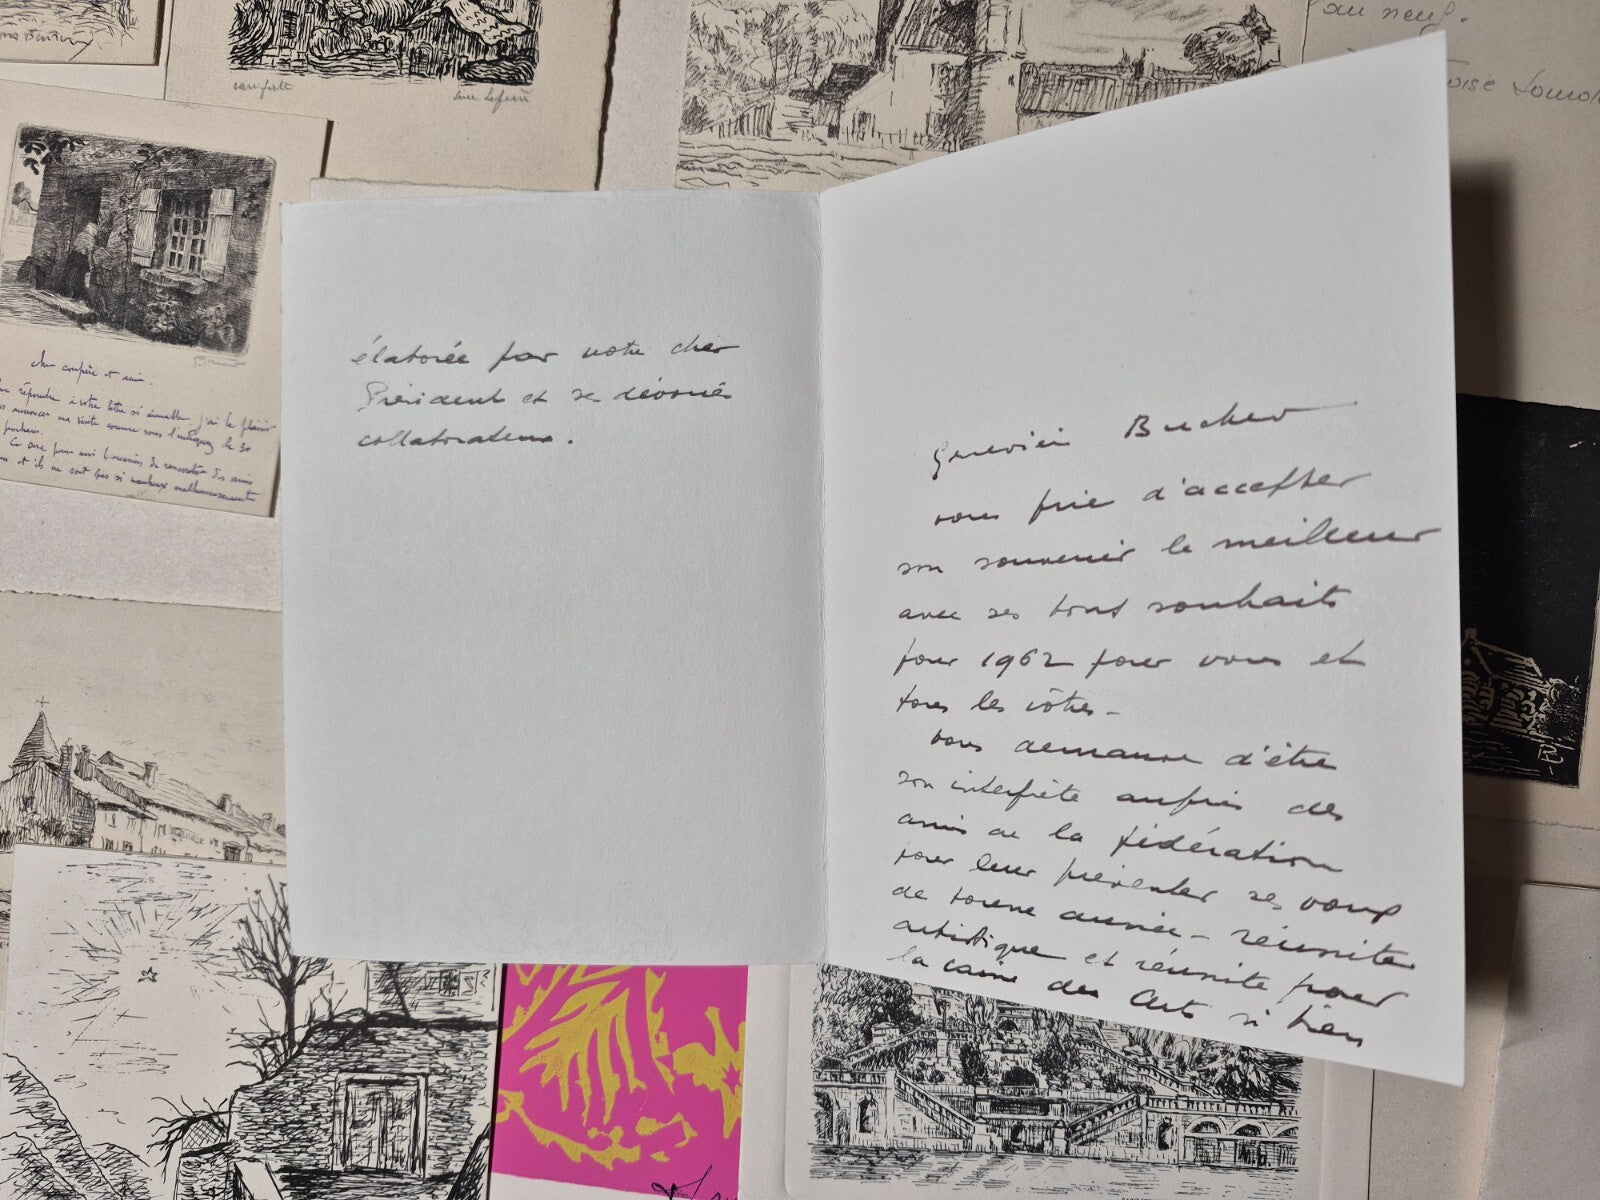 élaborée par notre cher
Président et ses dévoués
collaborateurs.
Bucher
vous prie d'accepter
son souvenir le meilleur
avec ses tout souhaits
pour 1962 pour vous et
tous les vôtres –
vous demande d'être
son interprète auprès des
amis de la fédération
pour leur présenter ses vœux
de bonne année – réunite
artistique et réunite pour
la cause des Arts si bien
au neuf.
cher confrère et ami.
répondre à votre lettre si aimable j'ai le plaisir
annoncer ma visite comme vous l'indiquez le 30
prochain.
Ce sera pour moi l'occasion de rencontrer des amis
et ils ne sont pas si nombreux malheureusement